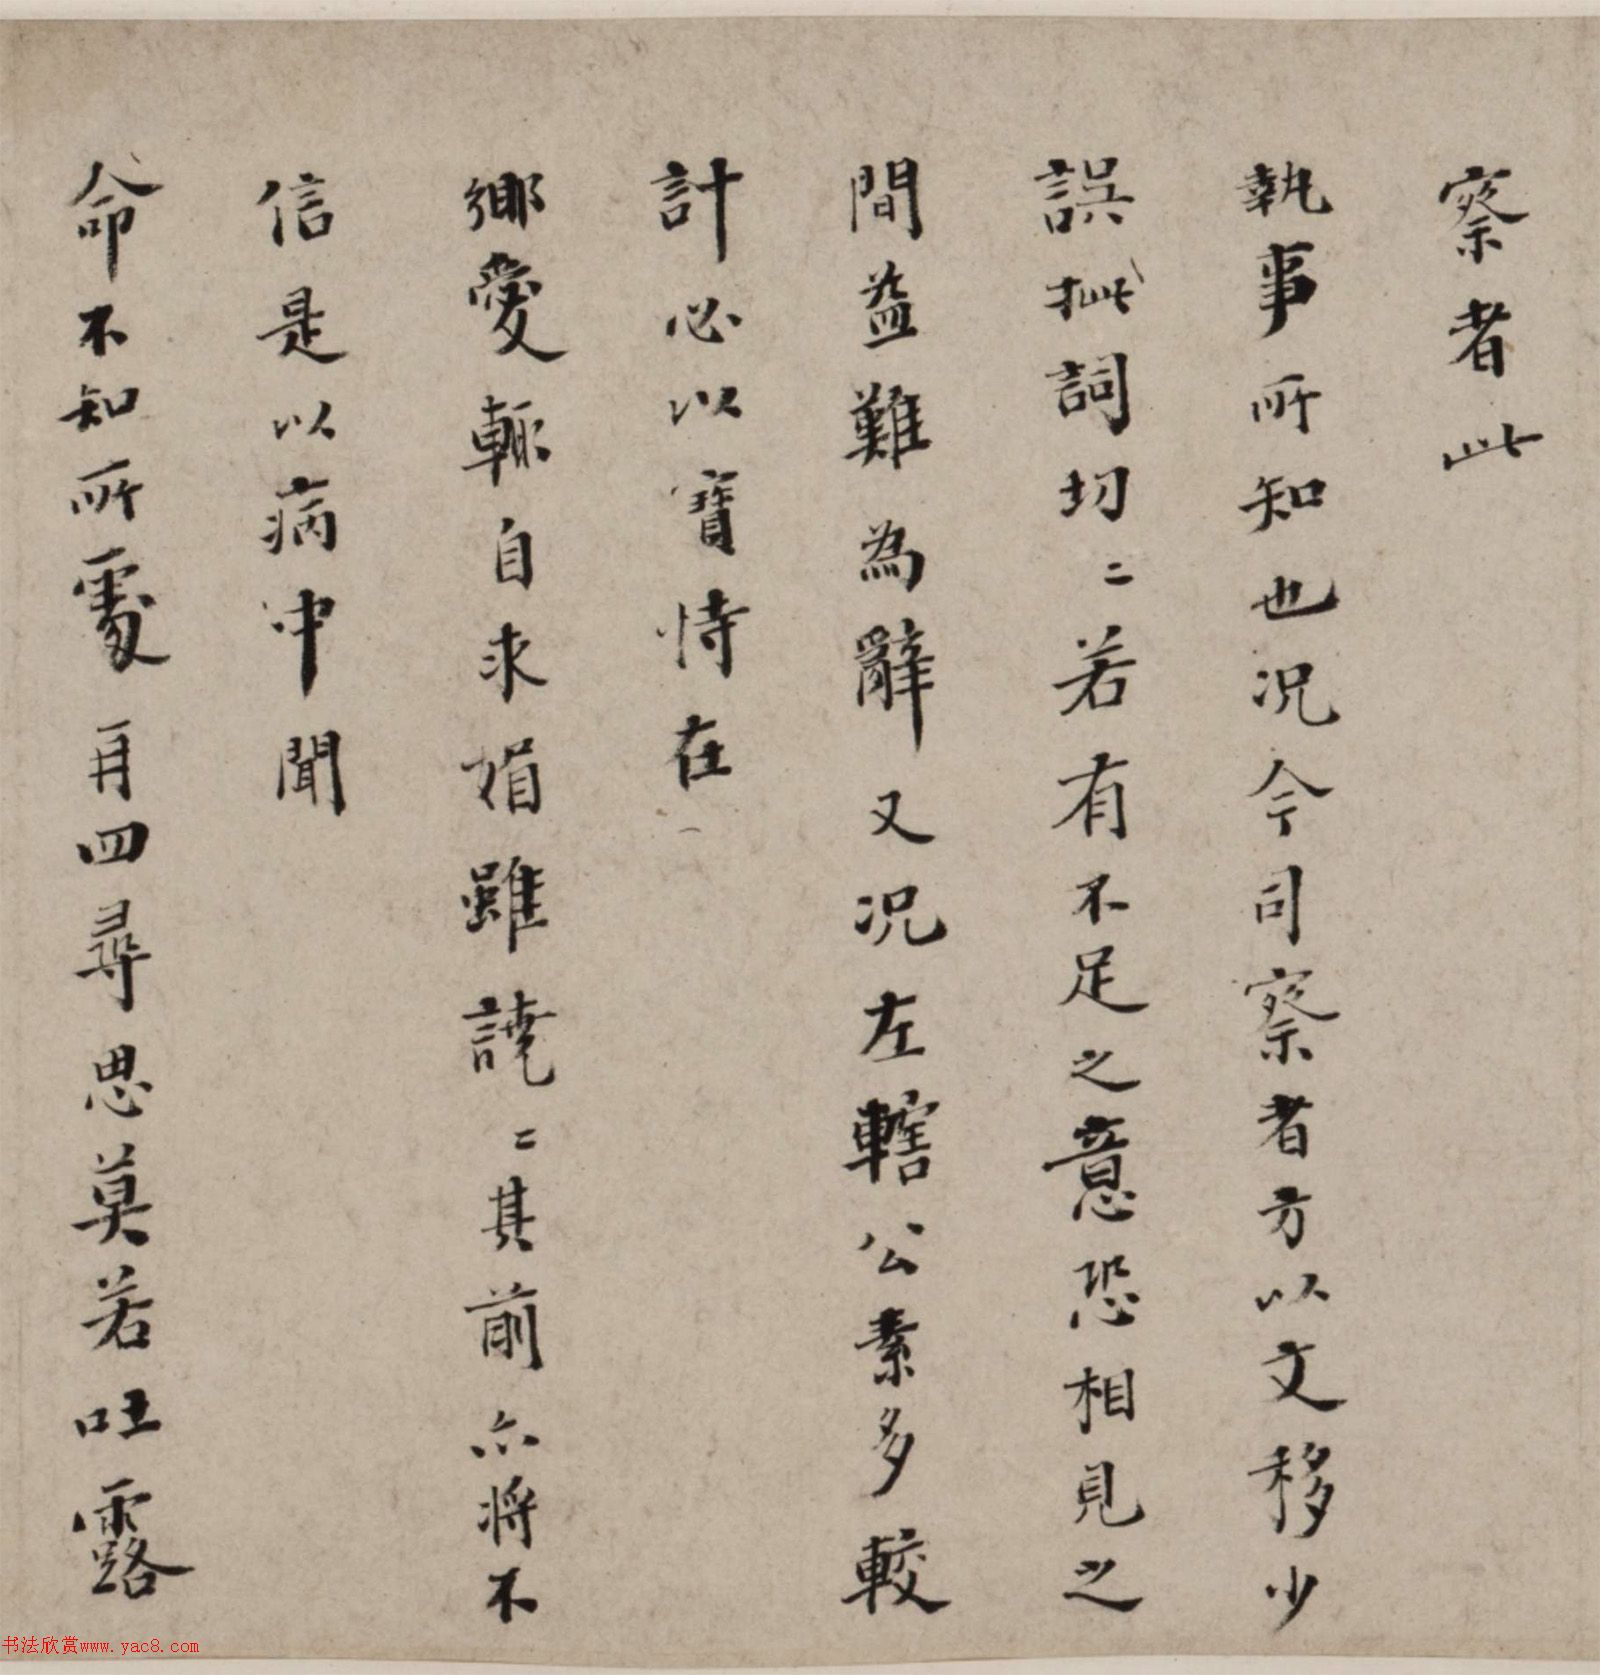 察者此
執事所知也况今司察者方以文移少
誤批詞切〻若有不足之意恐相見之
間益難為辭又况左轄公素多較
計必以寶恃在
鄉愛輒自求媚雖譊〻其前亦將不
信是以病中聞
命不知所處再四尋思莫若吐露
书法欣赏www.yac8.com